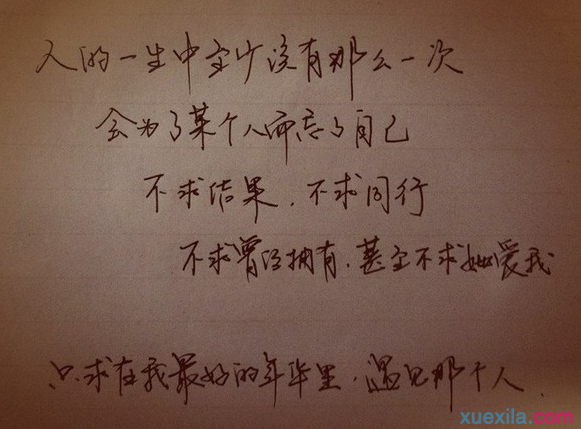 人的一生中至少该有那么一次
会为了某个人而忘了自己
不求结果、不求同行
不求曾经拥有、甚至不求她爱我
只求在我最好的年华里、遇见那个人
xuexila.com